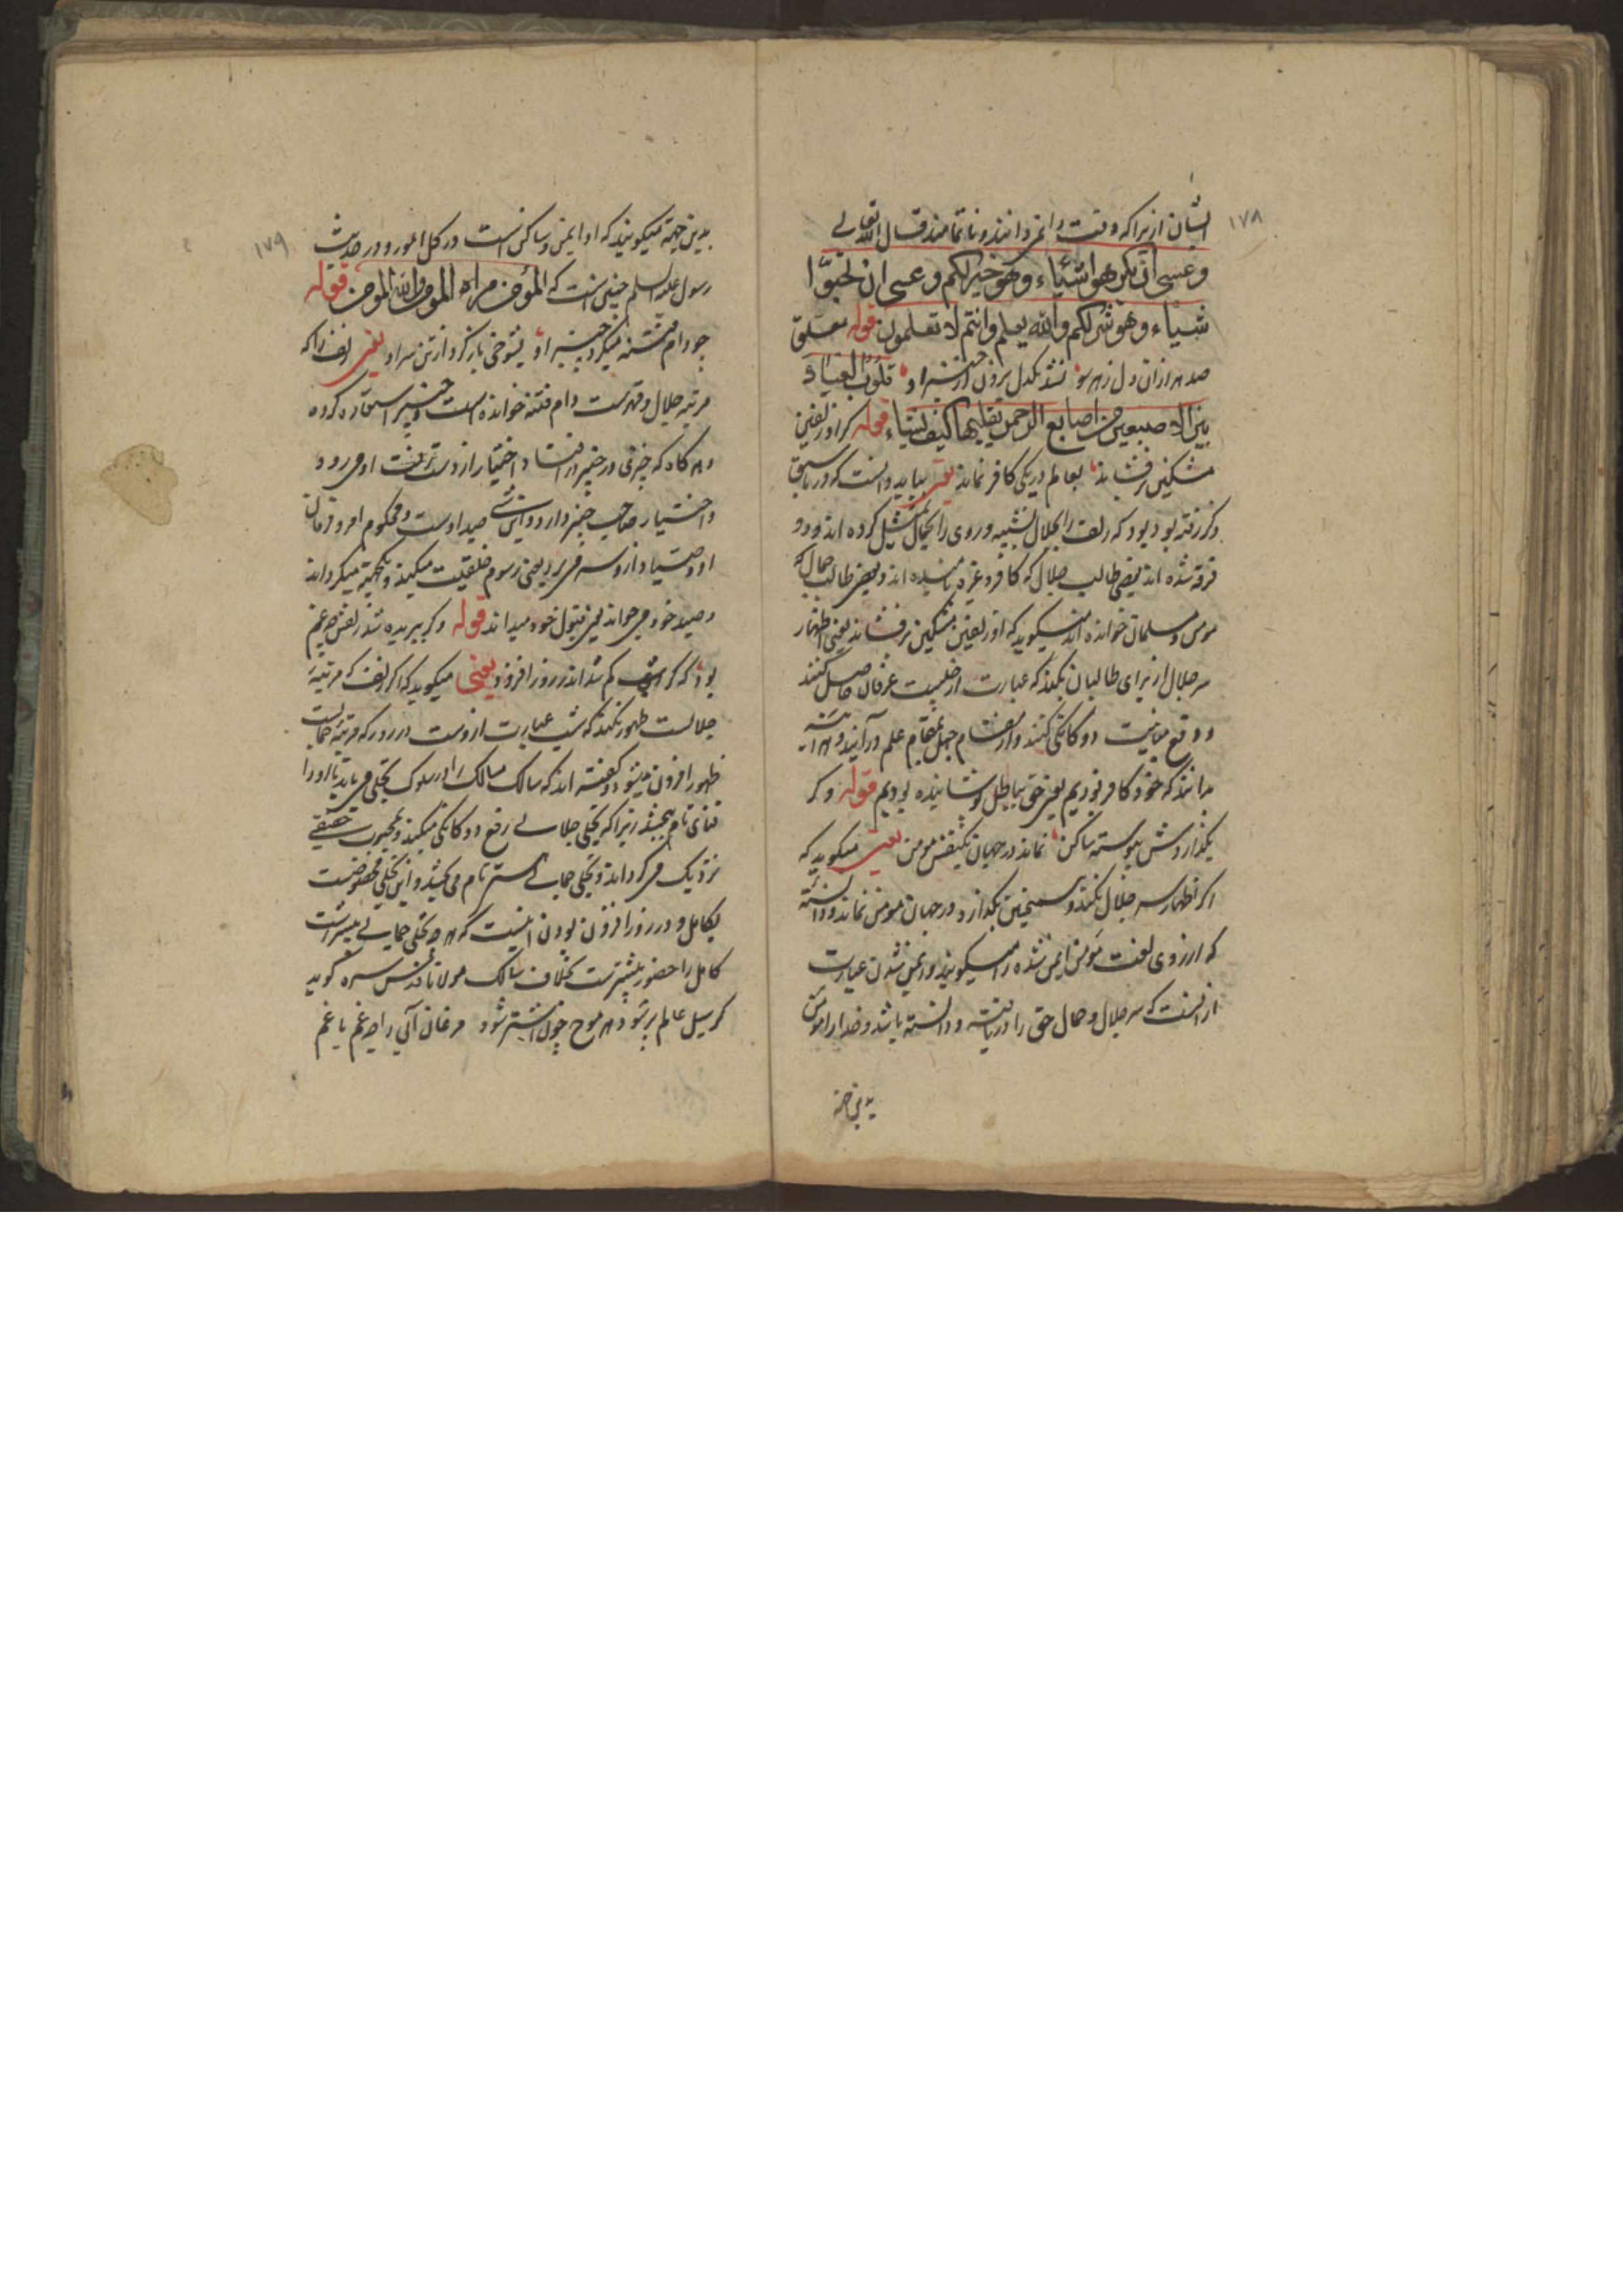 ۱۷۸
ایشان از برا که وقت را نمیدانند و نا تمامند قال الله تعالی
وعسی ان تکرهوا شیاء وهو خیر لکم وعسی ان تحبوا
شیاء وهو شر لکم والله یعلم وانتم لا تعلمون قوله معلق
صد هزاران دل ز هر سو نشد یکدل برون از چنبر او قلوب العباد
بین الاصبعین من اصابع الرحمن یقلبها کیف یشاء قوله کر او زلفین
مشکین برفشاند بعالم در یکی کافر نماند یعنی بباید دانست که در ما سبق
ذکر رفته بود که زلف را بجلال تشبیه و روی را بجمال تمثیل کرده اند و دو
فرقه شده اند بعضی طالب جلال که کافر و غیره نامیده اند و بعضی طالب جمال که
مومن و مسلمان خوانده اند میکوید که او زلفین مشکین برفشاند یعنی اظهار
سر جلال از برای طالبان بکند که عبارت از خلیت عرفان حاصل کنند
و رفع دوکانکی کنند و از مقام جهل بمقام علم در آیند
بدانند که خود کافر بودیم یعنی حق بباطل پوشانیده بودیم قوله و کر
بکذاردش پیوسته ساکن نماند در جهان یکنفس مومن یعنی میکوید که
اکر اظهار سر جلال نکند و همچنین بکذارد در جهان مومن نماند و دانسته
که از روی لغت مومن ایمن شده را میکویند و ایمن شدن عبارت
از آنست که سر جلال و جمال حق را دریافته و دانسته باشد و خدا را مومن
بدین جهته
۱۷۹
بدین جهته میکویند که او ایمن و ساکن است در کل امور و در حدیث
رسول علیه السلم چنین است که المؤمن مراة المومن والله المومن قوله
چو دام فتنه میکرد چنبر او بشوخی باز کرد از تن سر او یعنی زلف را که
مرتبه جلال و قهرست دام فتنه خوانده است و چنبر استعاره کرده
و هر کاه که چیزی در چنبر افتاد اختیار از دست او می رود
و اختیار صاحب چنبر دارد و این شی صید اوست و محکوم امر و فرمان
او و صیاد از و سر می برد یعنی رسوم خلقیت میکند و یکجهته میکرداند
و صید خود می خواند یعنی قبول خود میداند قوله و کر ببریده شد زلفش چه غم
بود که کر شب کم شد اندر روز افزود یعنی میکوید که اکر زلف که مرتبه
جلالست ظهور نکند که شب عبارت ازوست در روز که مرتبه جمالست
ظهور افزون میشود و کفته اند که سالک مسالک را در سلوک تجلی می باید تا او را
فنای تام ببخشد زیرا که تجلی جلالی رفع دوکانکی میکند و بمحبوب حقیقی
نزدیک می کرداند و تجلی جمالی ستر تام می بخشد و این تجلی مخصوصست
بکامل و در روز افزون بودن اینست که هر چه تجلی جمالی بیشتر است
کامل را حضور بیشترست بخلاف سالک مولانا قدس سره کوید
کر سیل عالم پر شود هر موج چون اشتر شود مرغان آبی را چه غم تا غم